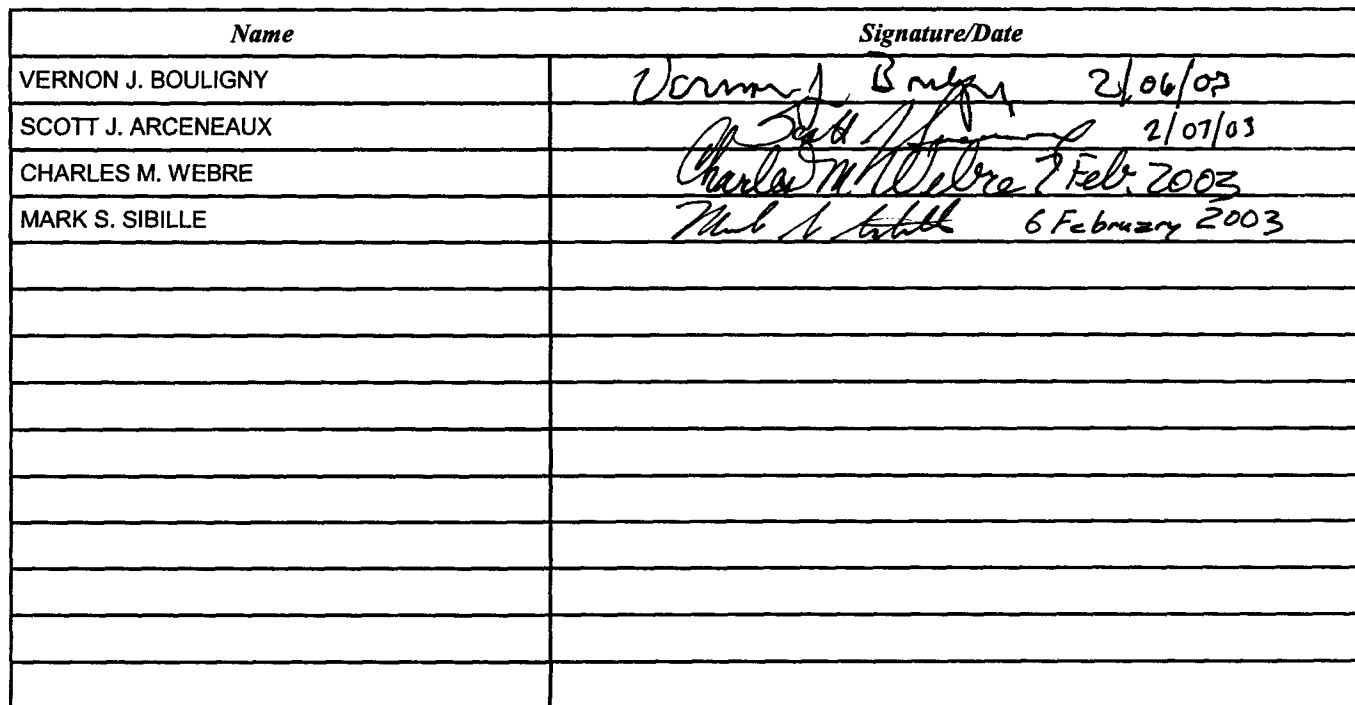 Name Signature/Date
VERNON J. BOULIGNY Vernon J. Bouligny 2/06/03
SCOTT J. ARCENEAUX Scott J. Arceneaux 2/07/03
CHARLES M. WEBRE Charles M. Webre 7 Feb. 2003
MARK S. SIBILLE Mark S. Sibille 6 February 2003